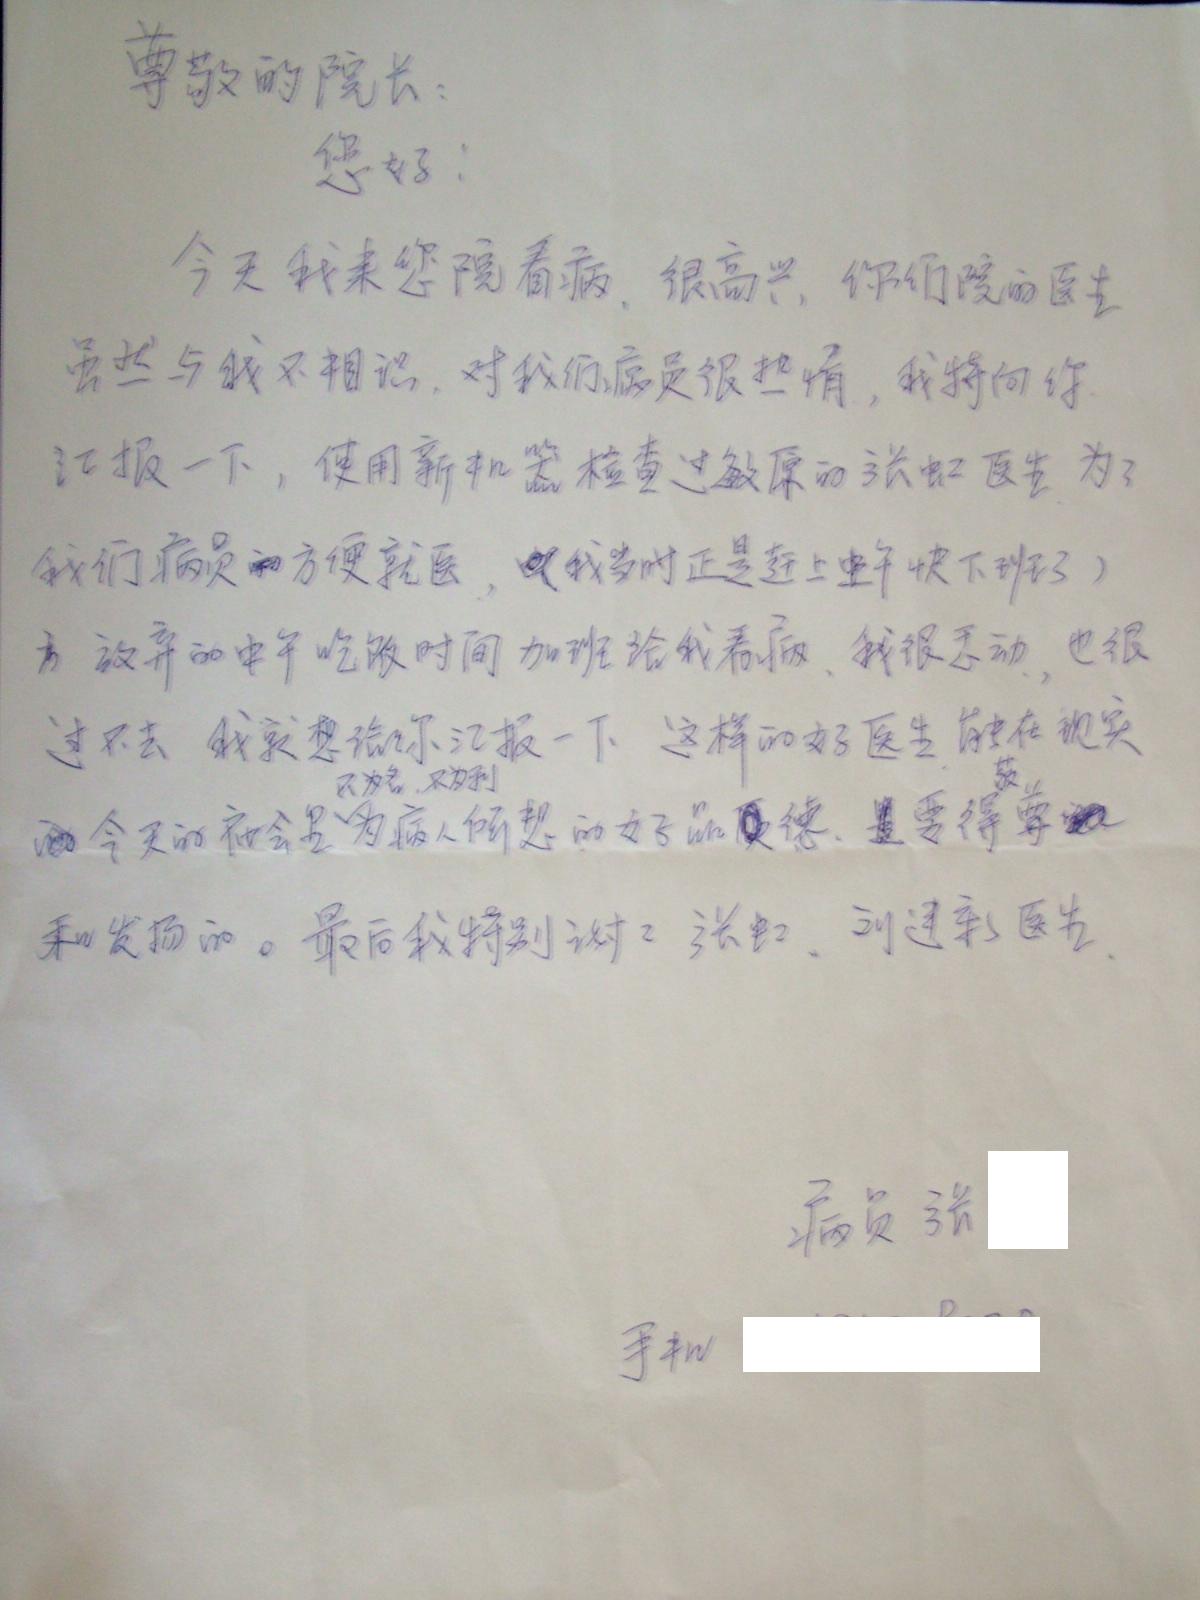 尊敬的院长:
您好:
今天我来您院看病、很高兴,你们院的医生
虽然与我不相识,对我们病员很热情,我特向你
汇报一下,使用新机器检查过敏原的张虹医生为了
我们病员方便就医,(我当时正是赶上中午快下班了)
放弃的中午吃饭时间加班给我看病、我很感动,也很
过不去 我就想给你汇报一下 这样的好医生,能在现实
今天的社会里不为名、不为利为病人所想的好品德、要得尊敬
和发扬的。最后我特别谢谢张虹、刘建新医生.
病员 张
手机